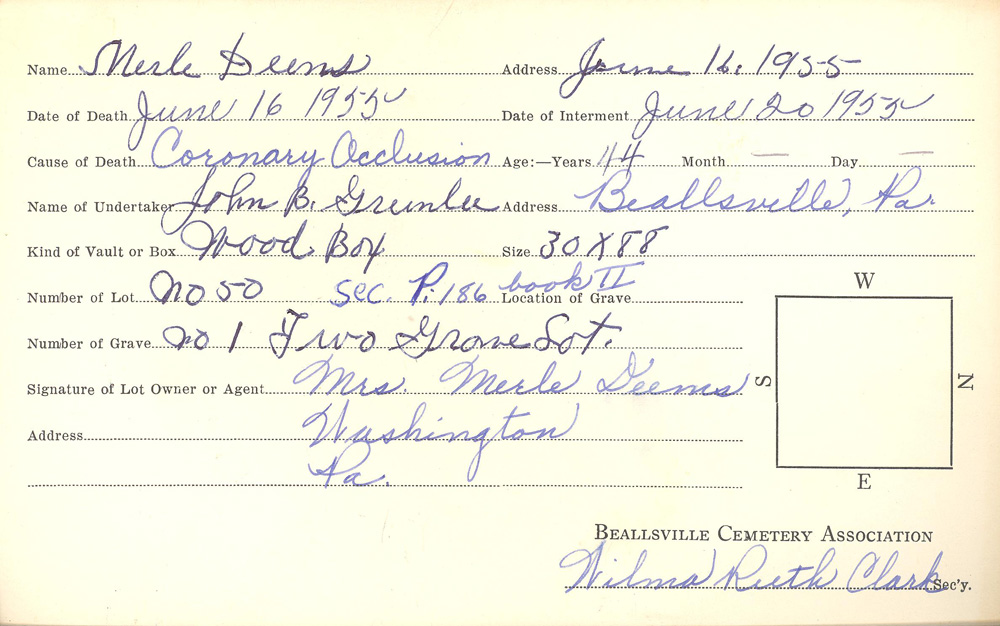 Name Merle Deems Address June 16, 1955
Date of Death June 16 1955 Date of Interment June 20 1955
Cause of Death Coronary Occlusion Age:—Years 44 Month — Day —
Name of Undertaker John B. Greenlee Address Beallsville, Pa.
Kind of Vault or Box Wood Box Size 30 X 88
Number of Lot No 50 Sec. P. 186 book II Location of Grave
Number of Grave no 1 Two Grave Lot.
Signature of Lot Owner or Agent Mrs. Merle Deems
Address Washington
Pa.
W
S
N
E
BEALLSVILLE CEMETERY ASSOCIATION
Wilma Ruth Clark Sec'y.